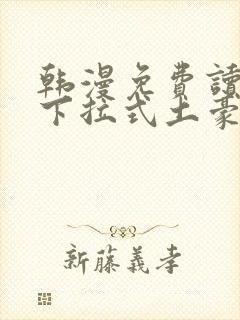 韩漫免費讀
下拉式土豪
新藤義孝